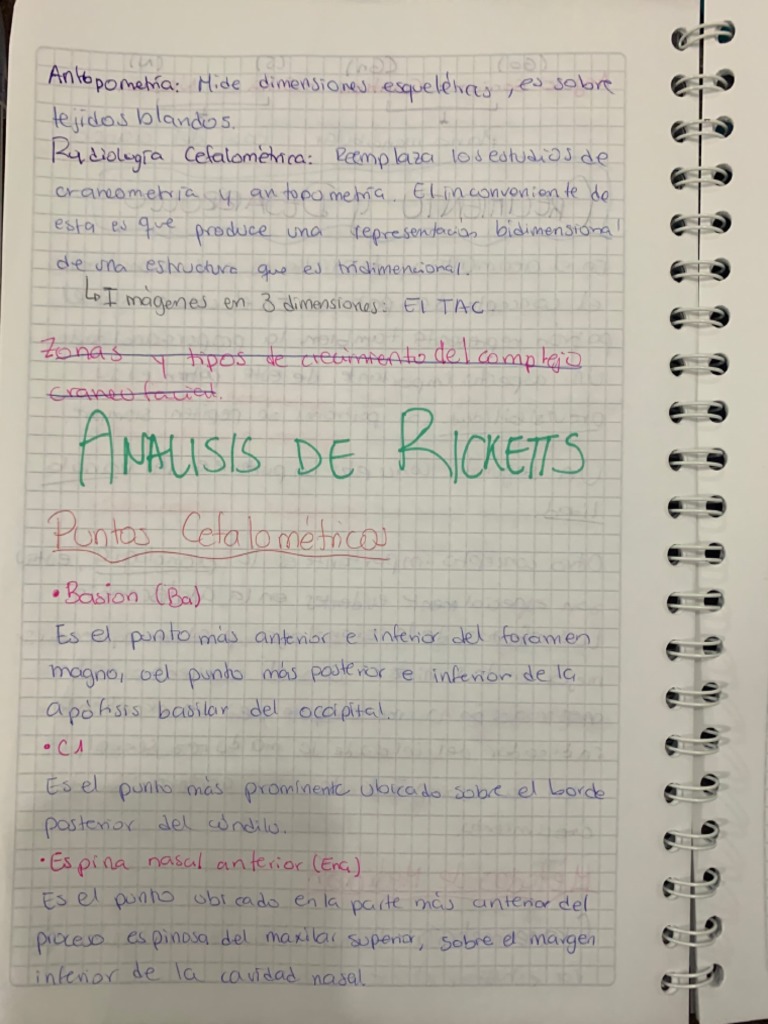 Antopometría: Mide dimensiones esqueléticas, es sobre
tejidos blandos.
Radiología Cefalométrica: Reemplaza los estudios de
craneometría y antopometría. El inconveniente de
esta es que produce una representacion bidimensional
de una estructura que es tridimencional.
↳ Imágenes en 3 dimensiones: El TAC.
Zonas y tipos de crecimiento del complejo
craneofacial.
ANALISIS DE RICKETTS
Puntos Cefalométricos
• Basion (Ba)
Es el punto más anterior e inferior del foramen
magno, o el punto más posterior e inferior de la
apófisis basilar del occipital.
• C1
Es el punto más prominente ubicado sobre el borde
posterior del cóndilo.
• Espina nasal anterior (Ena)
Es el punto ubicado en la parte más anterior del
proceso espinosa del maxilar superior, sobre el margen
inferior de la cavidad nasal